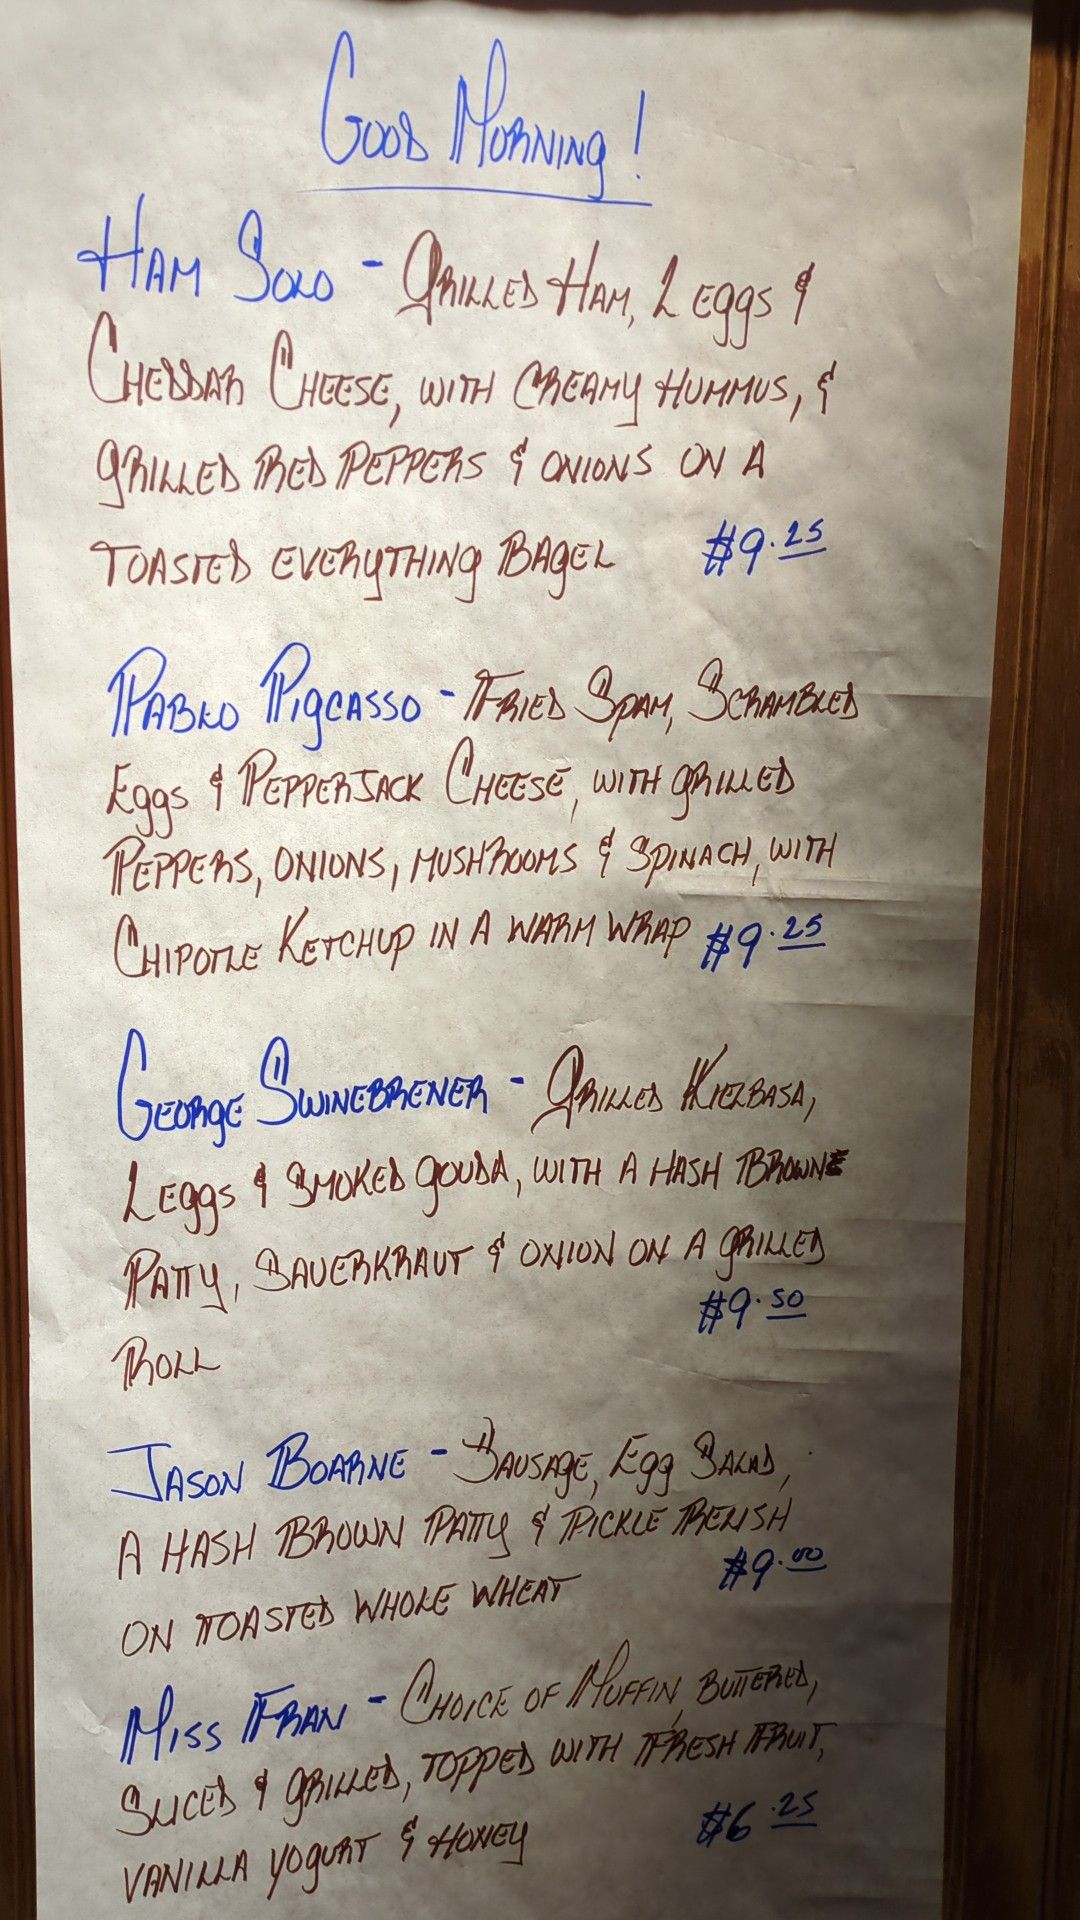 Good Morning!
Ham Solo - Grilled Ham, 2 eggs &
Cheddar Cheese, with creamy hummus, &
grilled red peppers & onions on a
toasted everything bagel $9.25
Pablo Pigcasso - Fried Spam, Scrambled
Eggs & Pepperjack Cheese, with grilled
Peppers, onions, mushrooms & spinach, with
Chipotle Ketchup in a warm wrap $9.25
George Swinebrener - Grilled Kielbasa,
2 eggs & smoked gouda, with a hash brown
patty, sauerkraut & onion on a grilled
$9.50
roll
Jason Boarne - Sausage, Egg Salad,
a hash brown patty & pickle relish
$9.00
on toasted whole wheat
Miss Fran - Choice of Muffin, buttered,
sliced & grilled, topped with fresh fruit,
vanilla yogurt & honey $6.25